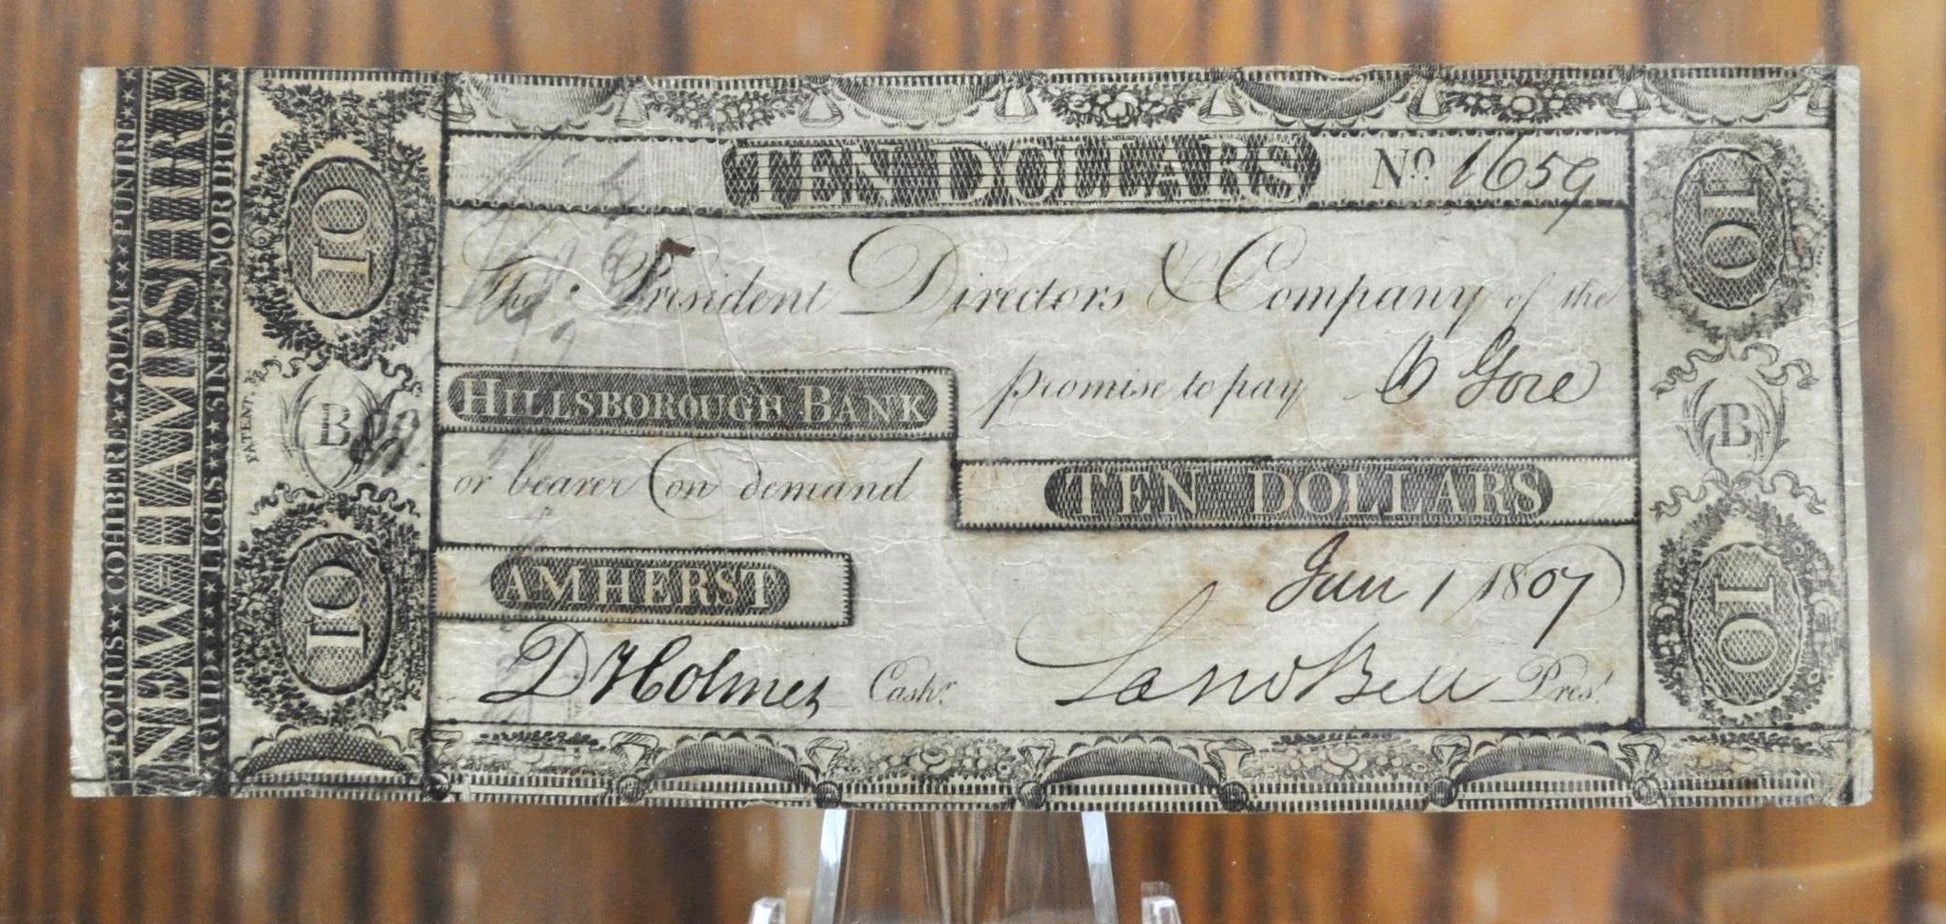 POTIUS ★ COHIBERE ★★ QUAM ★★★ PUNIRE ★★
NEW-HAMPSHIRE
QUID ★★★ LEGES ★★★ SINE ★★★ MORIBUS ★★★
10
PATENT.
B
10
TEN DOLLARS
No 1659
The President Directors & Company of the
HILLSBOROUGH BANK
promise to pay
Gore
or bearer on demand
TEN DOLLARS
AMHERST
Jan 1 1807
D Holmes Cashr.
Saml Bell Prest.
10
B
10